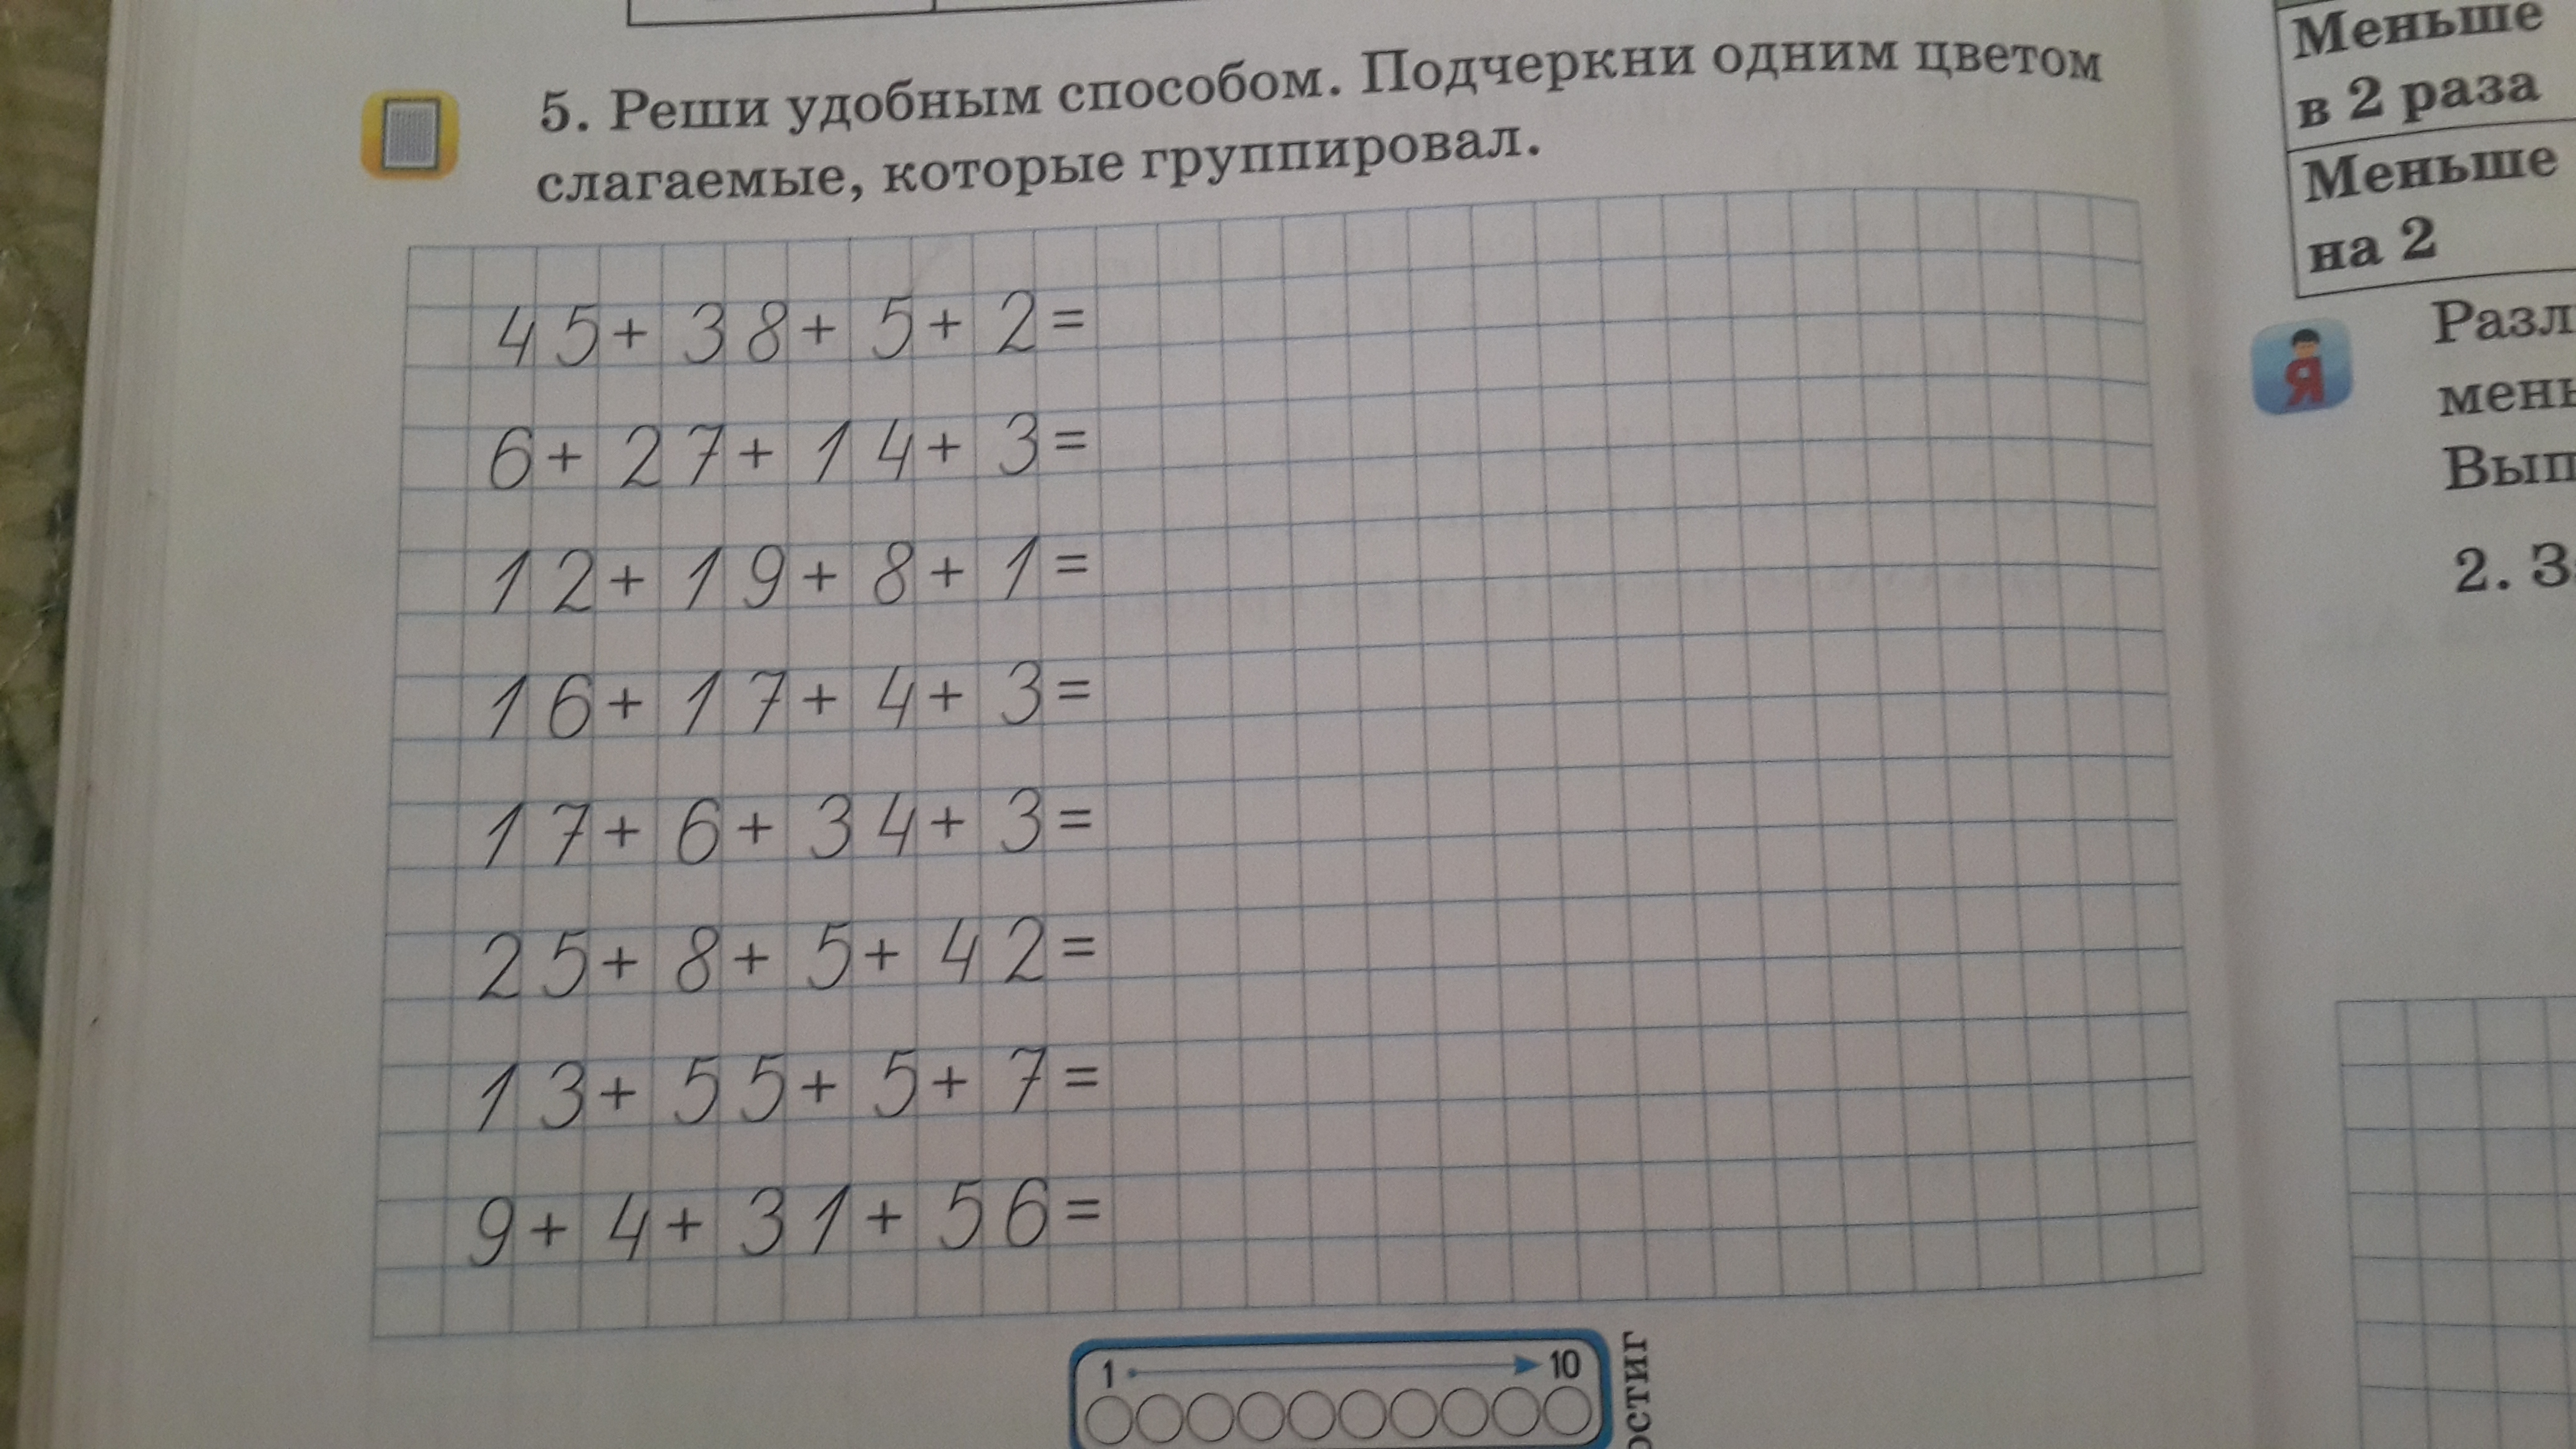 5. Реши удобным способом. Подчеркни одним цветом
слагаемые, которые группировал.
45+ 38+ 5+ 2=
6+ 27+ 14+ 3=
12+ 19+ 8+ 1=
16+ 17+ 4+ 3=
17+ 6+ 34+ 3=
25+ 8+ 5+ 42=
13+ 55+ 5+ 7=
9+ 4+ 31+ 56=
1 10
Меньше
в 2 раза
Меньше
на 2
Я
2.